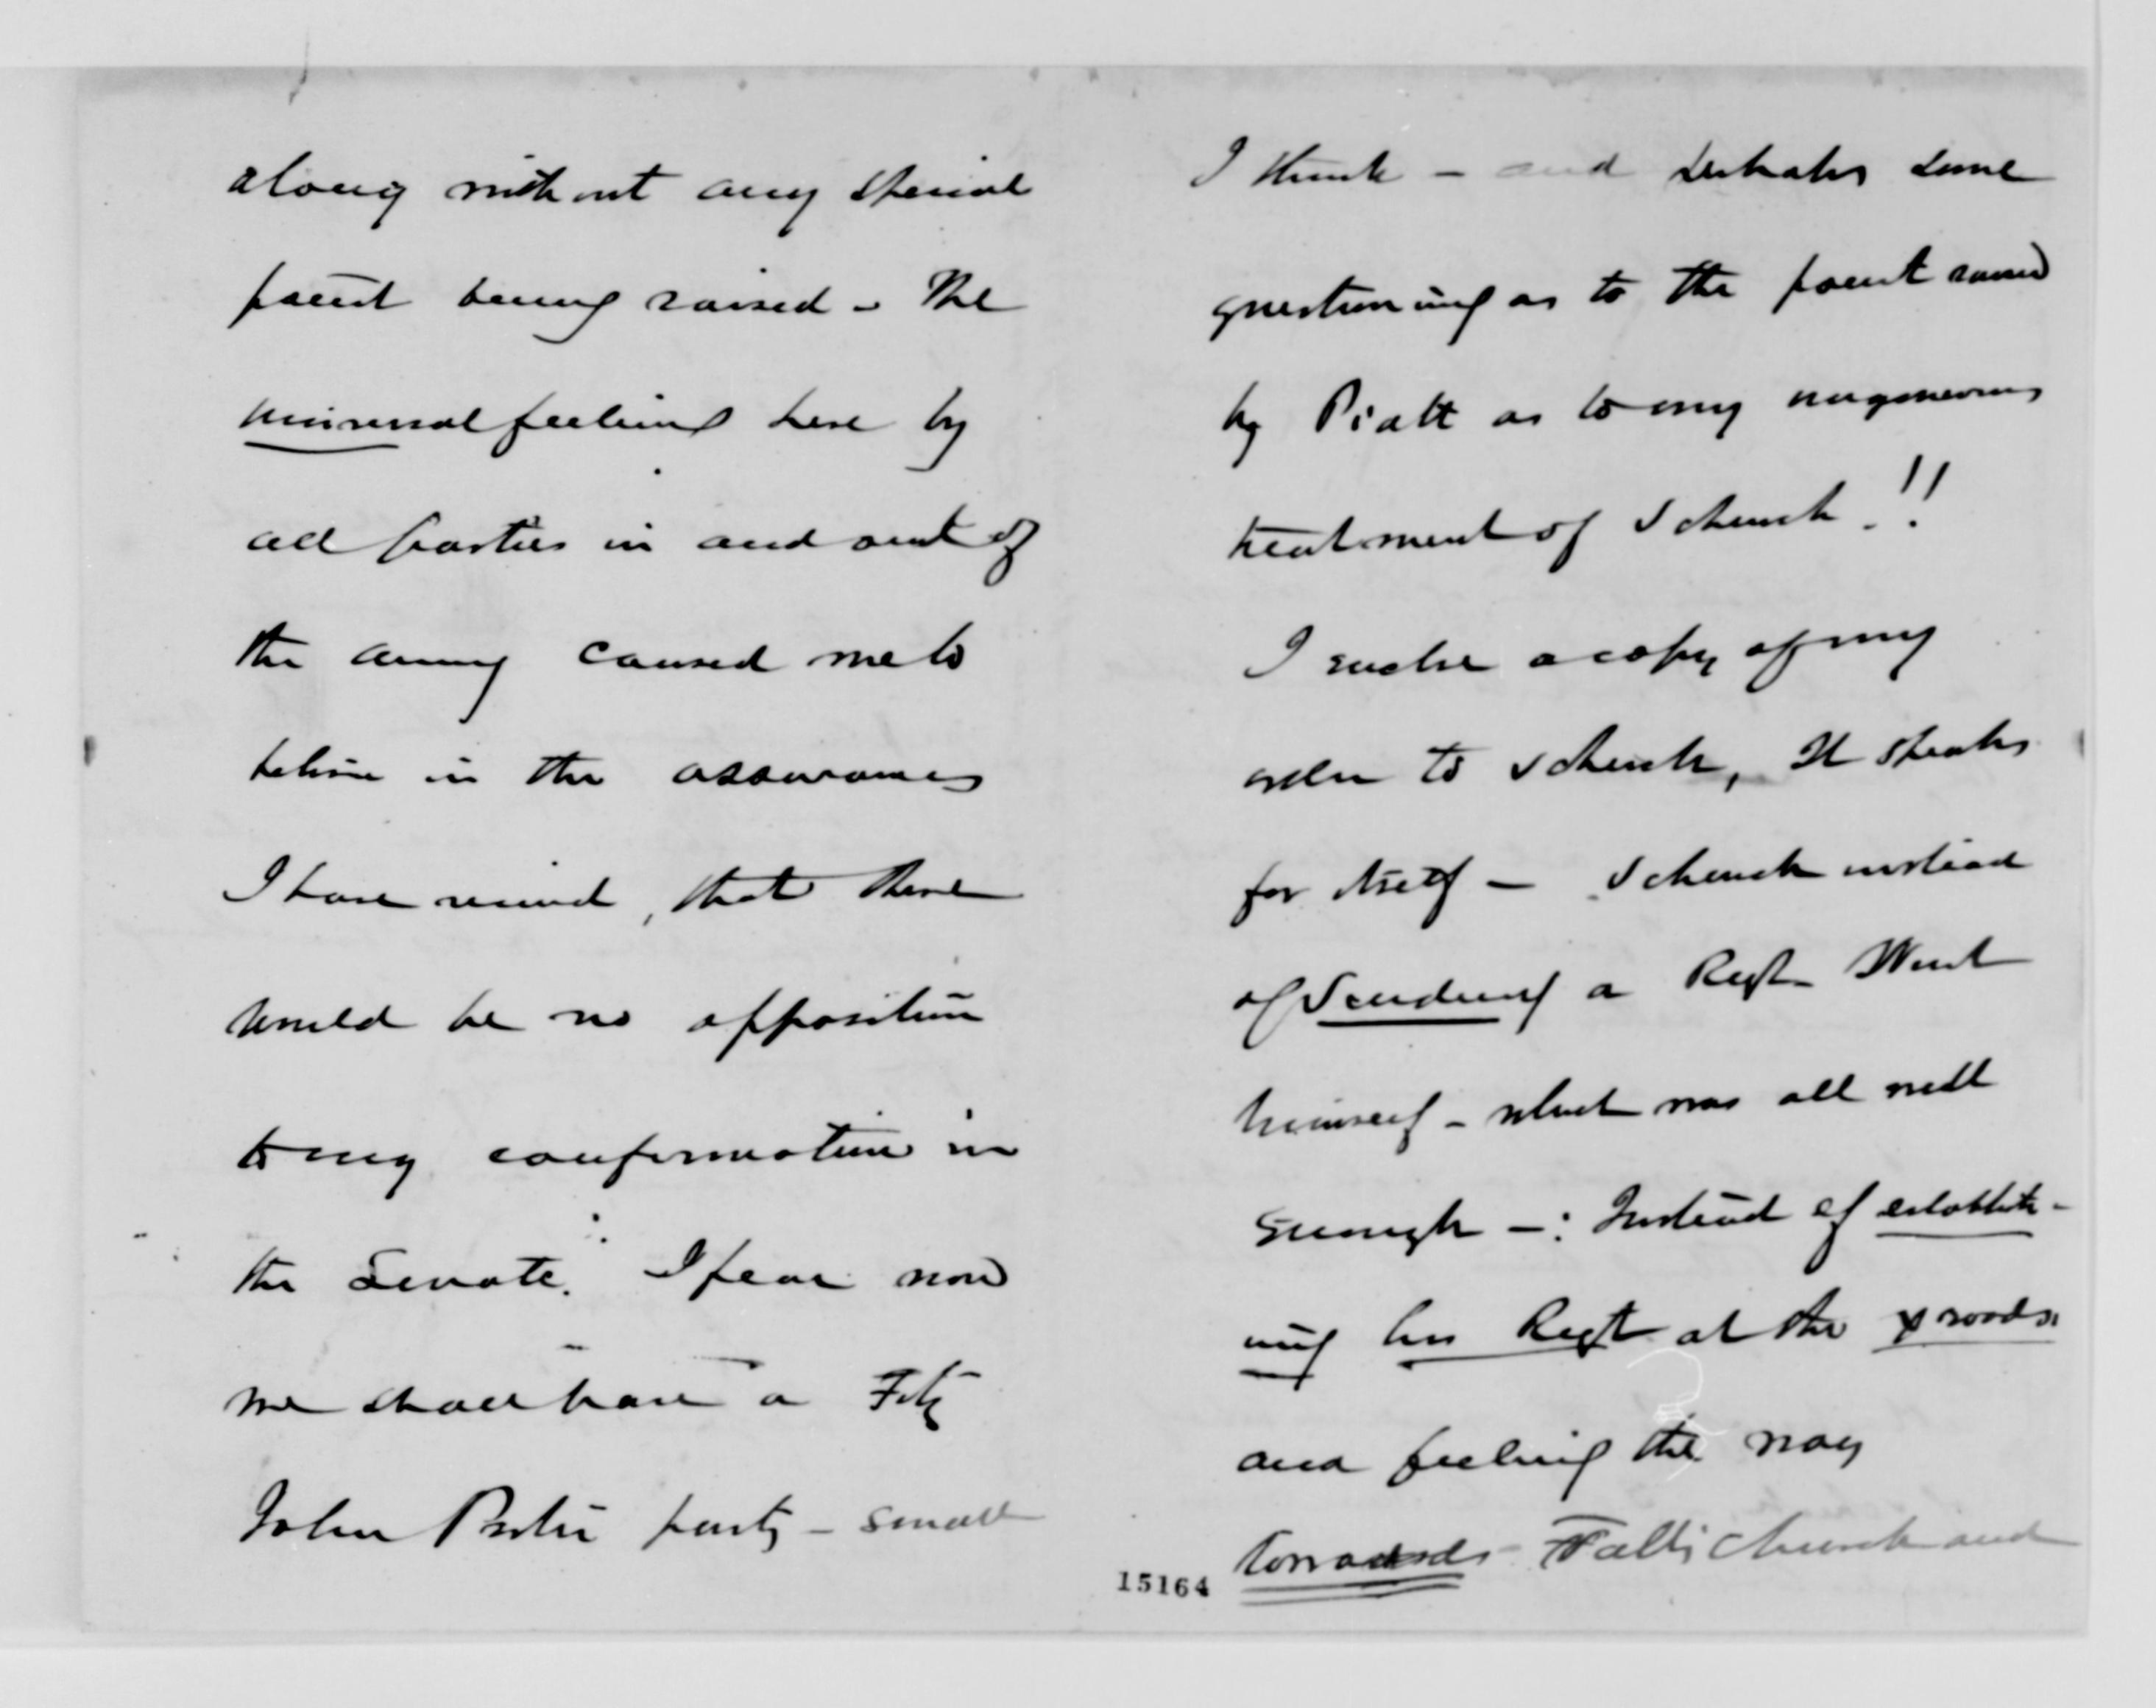 along without any special
point being raised - The
universal feeling here by
all parties in and out of
the army caused me to
believe in the assurances
I have received, that there
would be no opposition
to my confirmation in
the Senate. I fear now
we shall have a Fitz
John Porter party - small
I think - and perhaps some
questioning as to the point raised
by Piatt as to my ungenerous
treatment of Schenck.!!
I enclose a copy of my
order to Schenck, It speaks
for itself - Schenck instead
of sending a Regt. Went
himself - which was all well
enough -: Instead of establish-
ing his Regt at the x roads.
and feeling the way
towards Falls Church and
15164